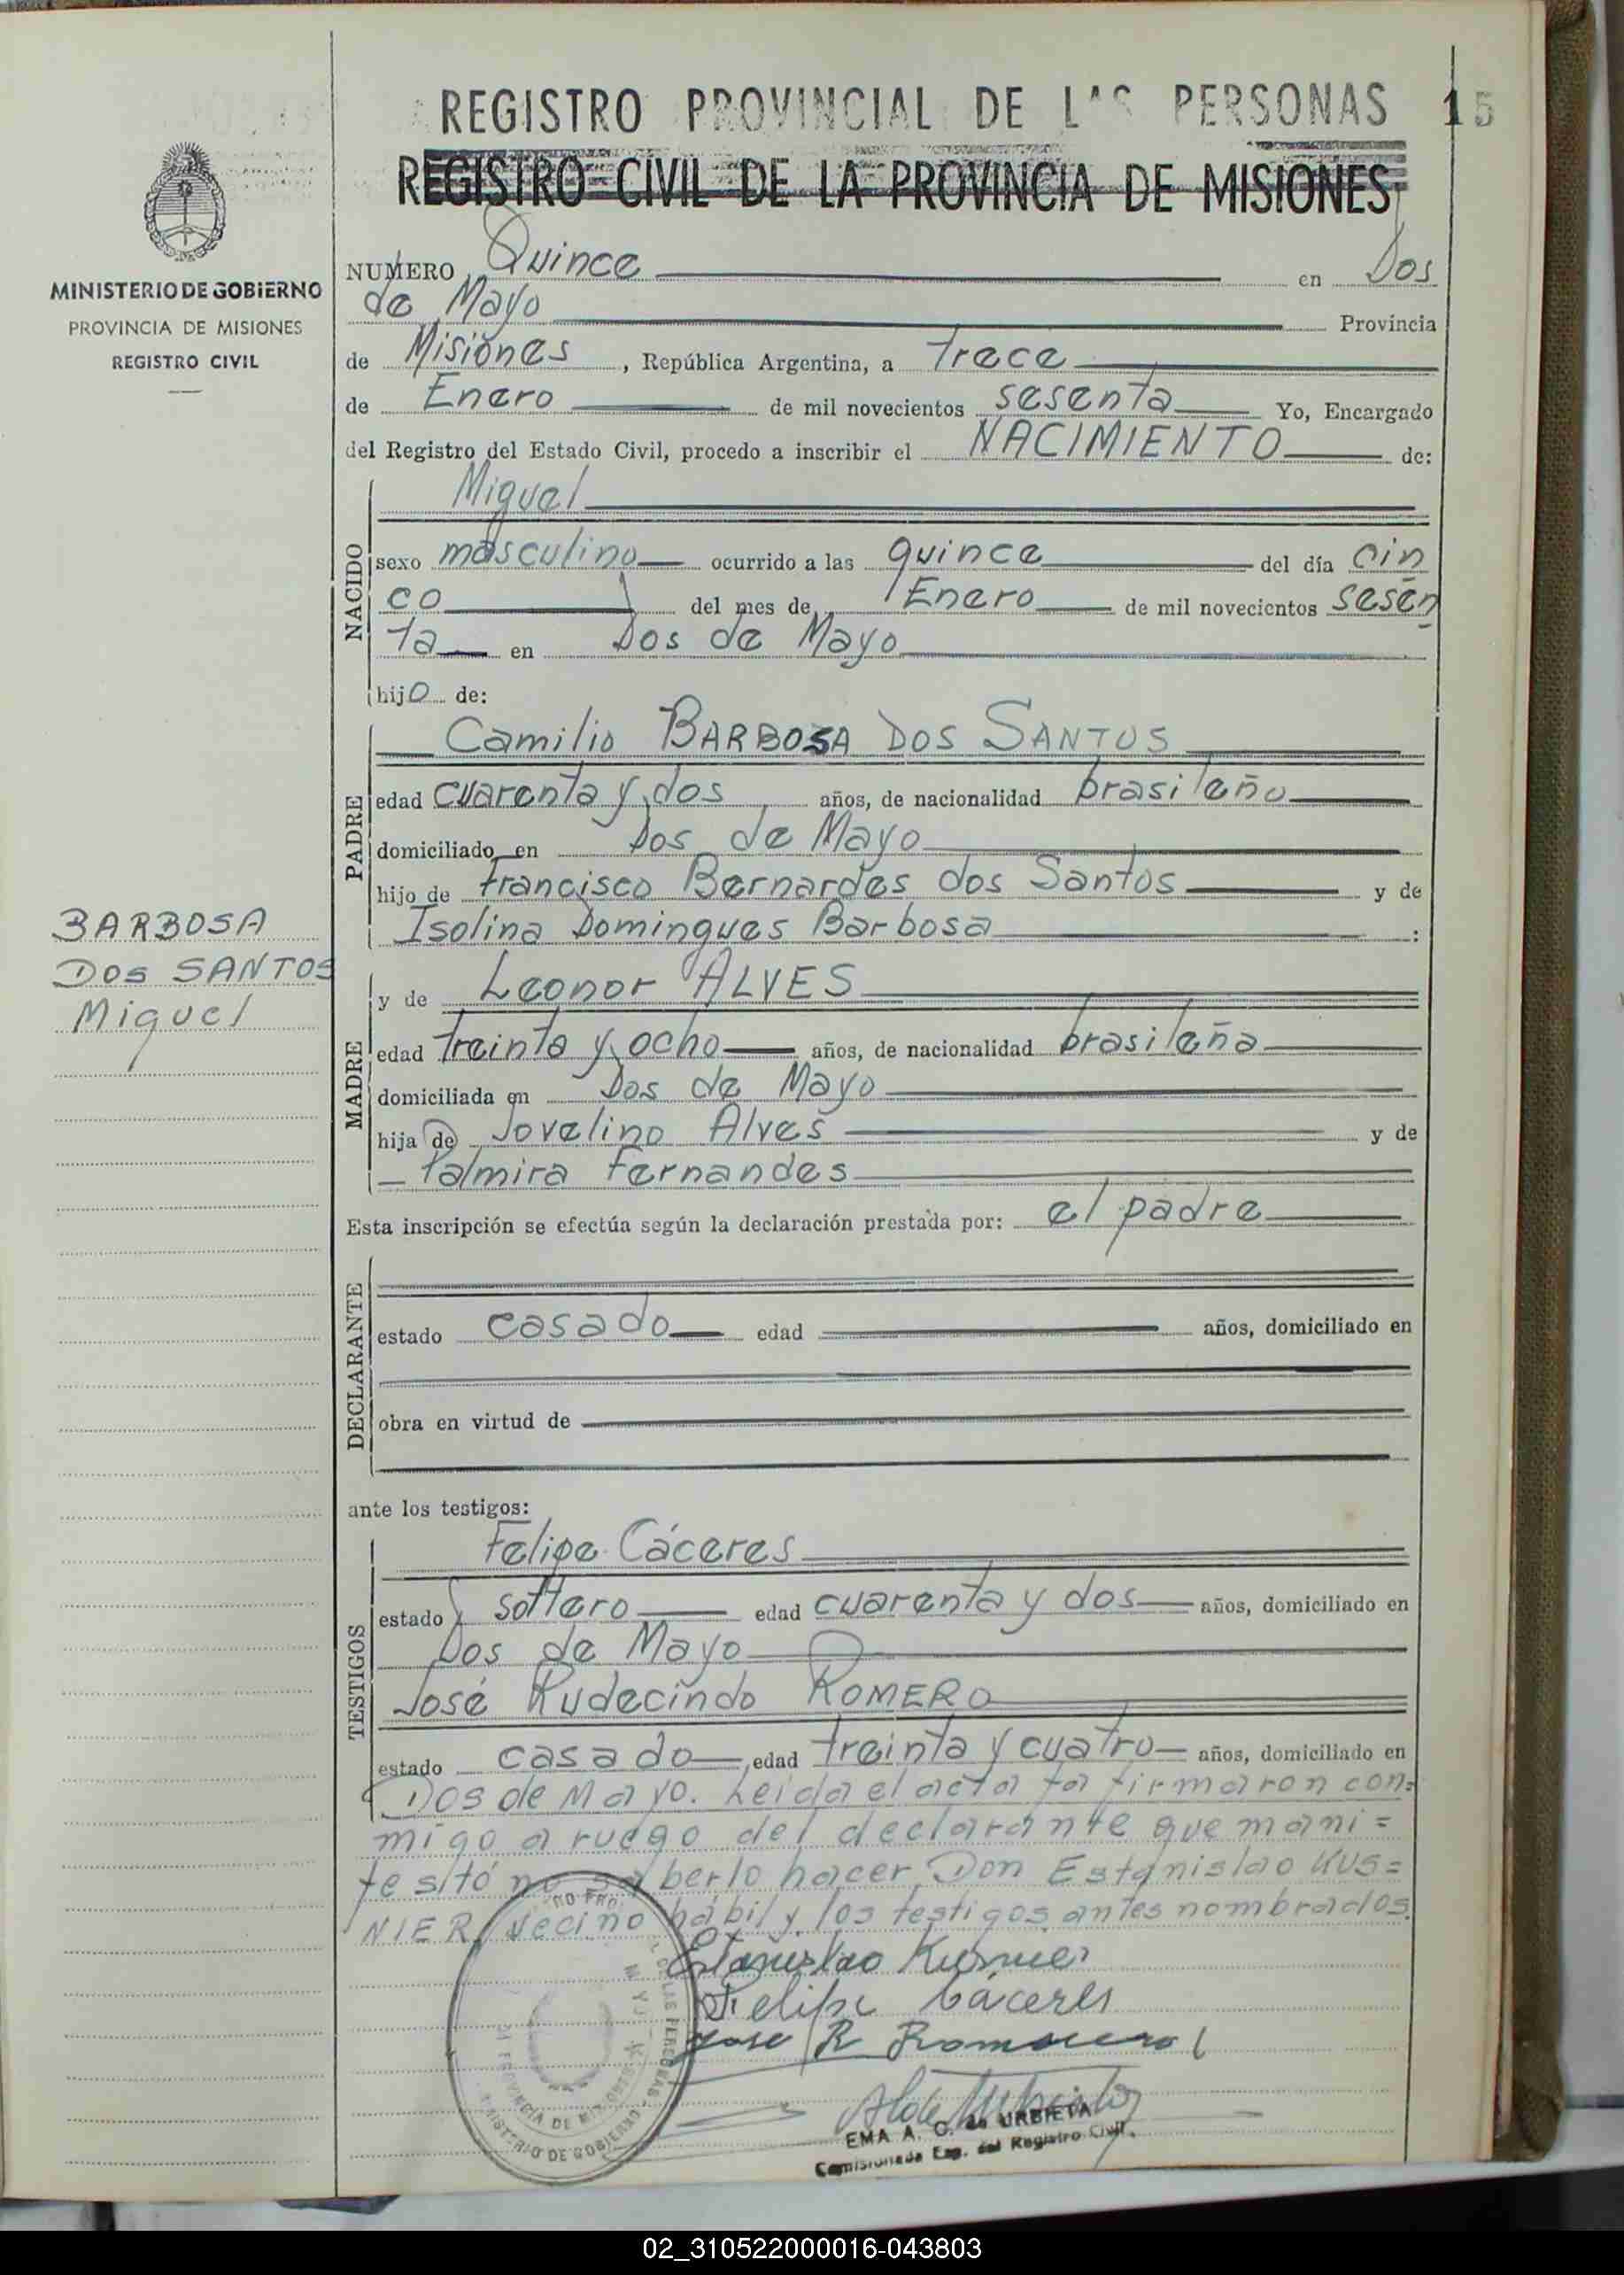 REGISTRO PROVINCIAL DE LAS PERSONAS 15
REGISTRO CIVIL DE LA PROVINCIA DE MISIONES
MINISTERIO DE GOBIERNO
PROVINCIA DE MISIONES
REGISTRO CIVIL
NUMERO Quince en Dos
de Mayo Provincia
de Misiones, República Argentina, a trece
de Enero de mil novecientos sesenta Yo, Encargado
del Registro del Estado Civil, procedo a inscribir el NACIMIENTO de:
NACIDO
Miguel
sexo masculino ocurrido a las quince del día cin
co del mes de Enero de mil novecientos sesen
ta en Dos de Mayo
hijo de:
PADRE
Camilio BARBOSA DOS SANTOS
edad cuarenta y dos años, de nacionalidad brasileño
domiciliado en Dos de Mayo
hijo de Francisco Bernardes dos Santos y de
Isolina Domingues Barbosa :
BARBOSA
DOS SANTOS
Miguel
MADRE
y de Leonor ALVES
edad treinta y ocho años, de nacionalidad brasileña
domiciliada en Dos de Mayo
hija de Jovelino Alves y de
Palmira Fernandes
Esta inscripción se efectúa según la declaración prestada por: el padre
DECLARANTE
estado casado edad años, domiciliado en
obra en virtud de
ante los testigos:
TESTIGOS
Felipe Cáceres
estado soltero edad cuarenta y dos años, domiciliado en
Dos de Mayo
José Rudecindo ROMERO
estado casado edad treinta y cuatro años, domiciliado en
Dos de Mayo. Leida el acta la firmaron con=
migo a ruego del declarante que mani=
festó no saberlo hacer, Don Estanislao KUS=
NIER, vecino hábil y los testigos antes nombrados.
Estanislao Kusnier
Felipe Cáceres
Jose R Romero
EMA A. G. de URBIETA
Comisionada Esp. del Registro Civil.
PROVINCIA DE MISIONES
MINISTERIO DE GOBIERNO
02_310522000016-043803